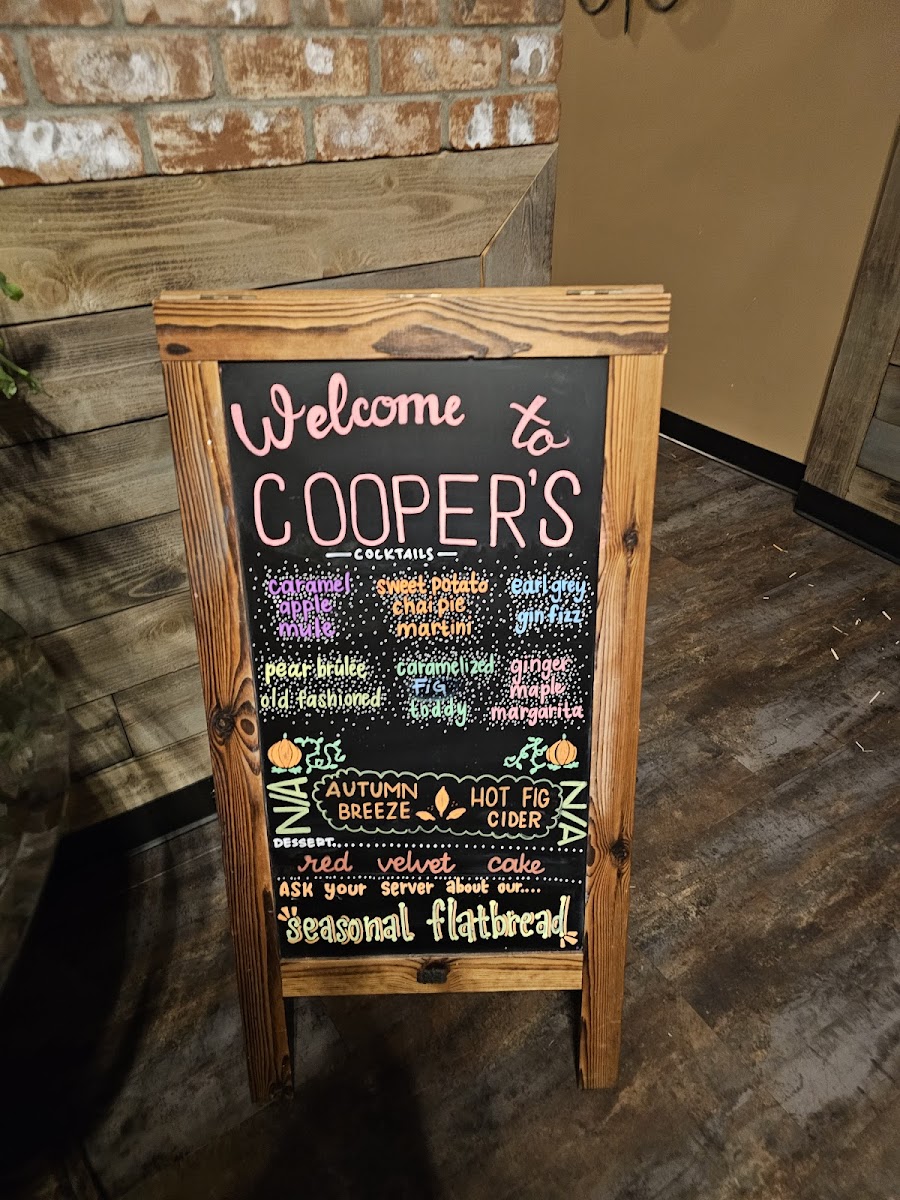 Welcome to
COOPER'S
COCKTAILS
caramel apple mule
sweet potato chai pie martini
earl grey gin fizz
pear brûlée old fashioned
caramelized FIG toddy
ginger maple margarita
N/A
AUTUMN BREEZE
HOT FIG CIDER
N/A
DESSERT........
red velvet cake
ASK your server about our....
seasonal flatbread